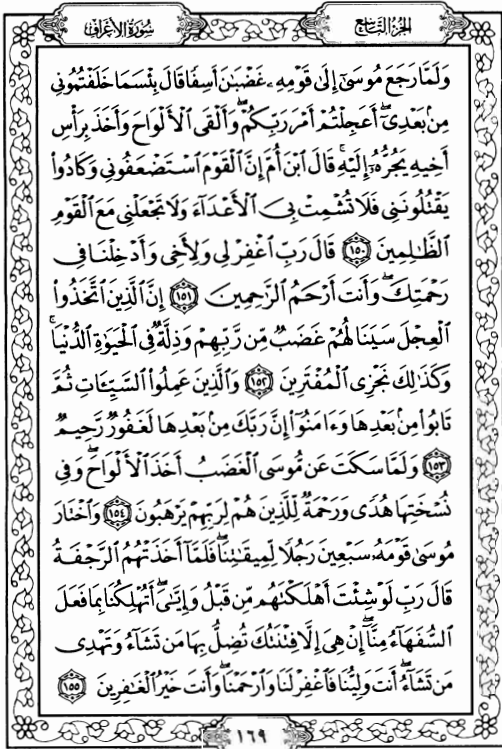 سُورَةُ الأَعْرَافِ
الجُزْءُ التَّاسِعُ
وَلَمَّا رَجَعَ مُوسَىٰٓ إِلَىٰ قَوْمِهِۦ غَضْبَٰنَ أَسِفًا قَالَ بِئْسَمَا خَلَفْتُمُونِى
مِنۢ بَعْدِىٓ ۖ أَعَجِلْتُمْ أَمْرَ رَبِّكُمْ ۖ وَأَلْقَى ٱلْأَلْوَاحَ وَأَخَذَ بِرَأْسِ
أَخِيهِ يَجُرُّهُۥٓ إِلَيْهِ ۚ قَالَ ٱبْنَ أُمَّ إِنَّ ٱلْقَوْمَ ٱسْتَضْعَفُونِى وَكَادُوا۟
يَقْتُلُونَنِى فَلَا تُشْمِتْ بِىَ ٱلْأَعْدَآءَ وَلَا تَجْعَلْنِى مَعَ ٱلْقَوْمِ
ٱلظَّٰلِمِينَ ١٥٠ قَالَ رَبِّ ٱغْفِرْ لِى وَلِأَخِى وَأَدْخِلْنَا فِى
رَحْمَتِكَ ۖ وَأَنتَ أَرْحَمُ ٱلرَّٰحِمِينَ ١٥١ إِنَّ ٱلَّذِينَ ٱتَّخَذُوا۟
ٱلْعِجْلَ سَيَنَالُهُمْ غَضَبٌ مِّن رَّبِّهِمْ وَذِلَّةٌ فِى ٱلْحَيَوٰةِ ٱلدُّنْيَا ۚ
وَكَذَٰلِكَ نَجْزِى ٱلْمُفْتَرِينَ ١٥٢ وَٱلَّذِينَ عَمِلُوا۟ ٱلسَّيِّـَٔاتِ ثُمَّ
تَابُوا۟ مِنۢ بَعْدِهَا وَءَامَنُوٓا۟ إِنَّ رَبَّكَ مِنۢ بَعْدِهَا لَغَفُورٌ رَّحِيمٌ
١٥٣ وَلَمَّا سَكَتَ عَن مُّوسَى ٱلْغَضَبُ أَخَذَ ٱلْأَلْوَاحَ ۖ وَفِى
نُسْخَتِهَا هُدًى وَرَحْمَةٌ لِّلَّذِينَ هُمْ لِرَبِّهِمْ يَرْهَبُونَ ١٥٤ وَٱخْتَارَ
مُوسَىٰ قَوْمَهُۥ سَبْعِينَ رَجُلًا لِّمِيقَٰتِنَا ۖ فَلَمَّآ أَخَذَتْهُمُ ٱلرَّجْفَةُ
قَالَ رَبِّ لَوْ شِئْتَ أَهْلَكْتَهُم مِّن قَبْلُ وَإِيَّٰىَ ۖ أَتُهْلِكُنَا بِمَا فَعَلَ
ٱلسُّفَهَآءُ مِنَّآ ۖ إِنْ هِىَ إِلَّا فِتْنَتُكَ تُضِلُّ بِهَا مَن تَشَآءُ وَتَهْدِى
مَن تَشَآءُ ۖ أَنتَ وَلِيُّنَا فَٱغْفِرْ لَنَا وَٱرْحَمْنَا ۖ وَأَنتَ خَيْرُ ٱلْغَٰفِرِينَ ١٥٥
١٦٩